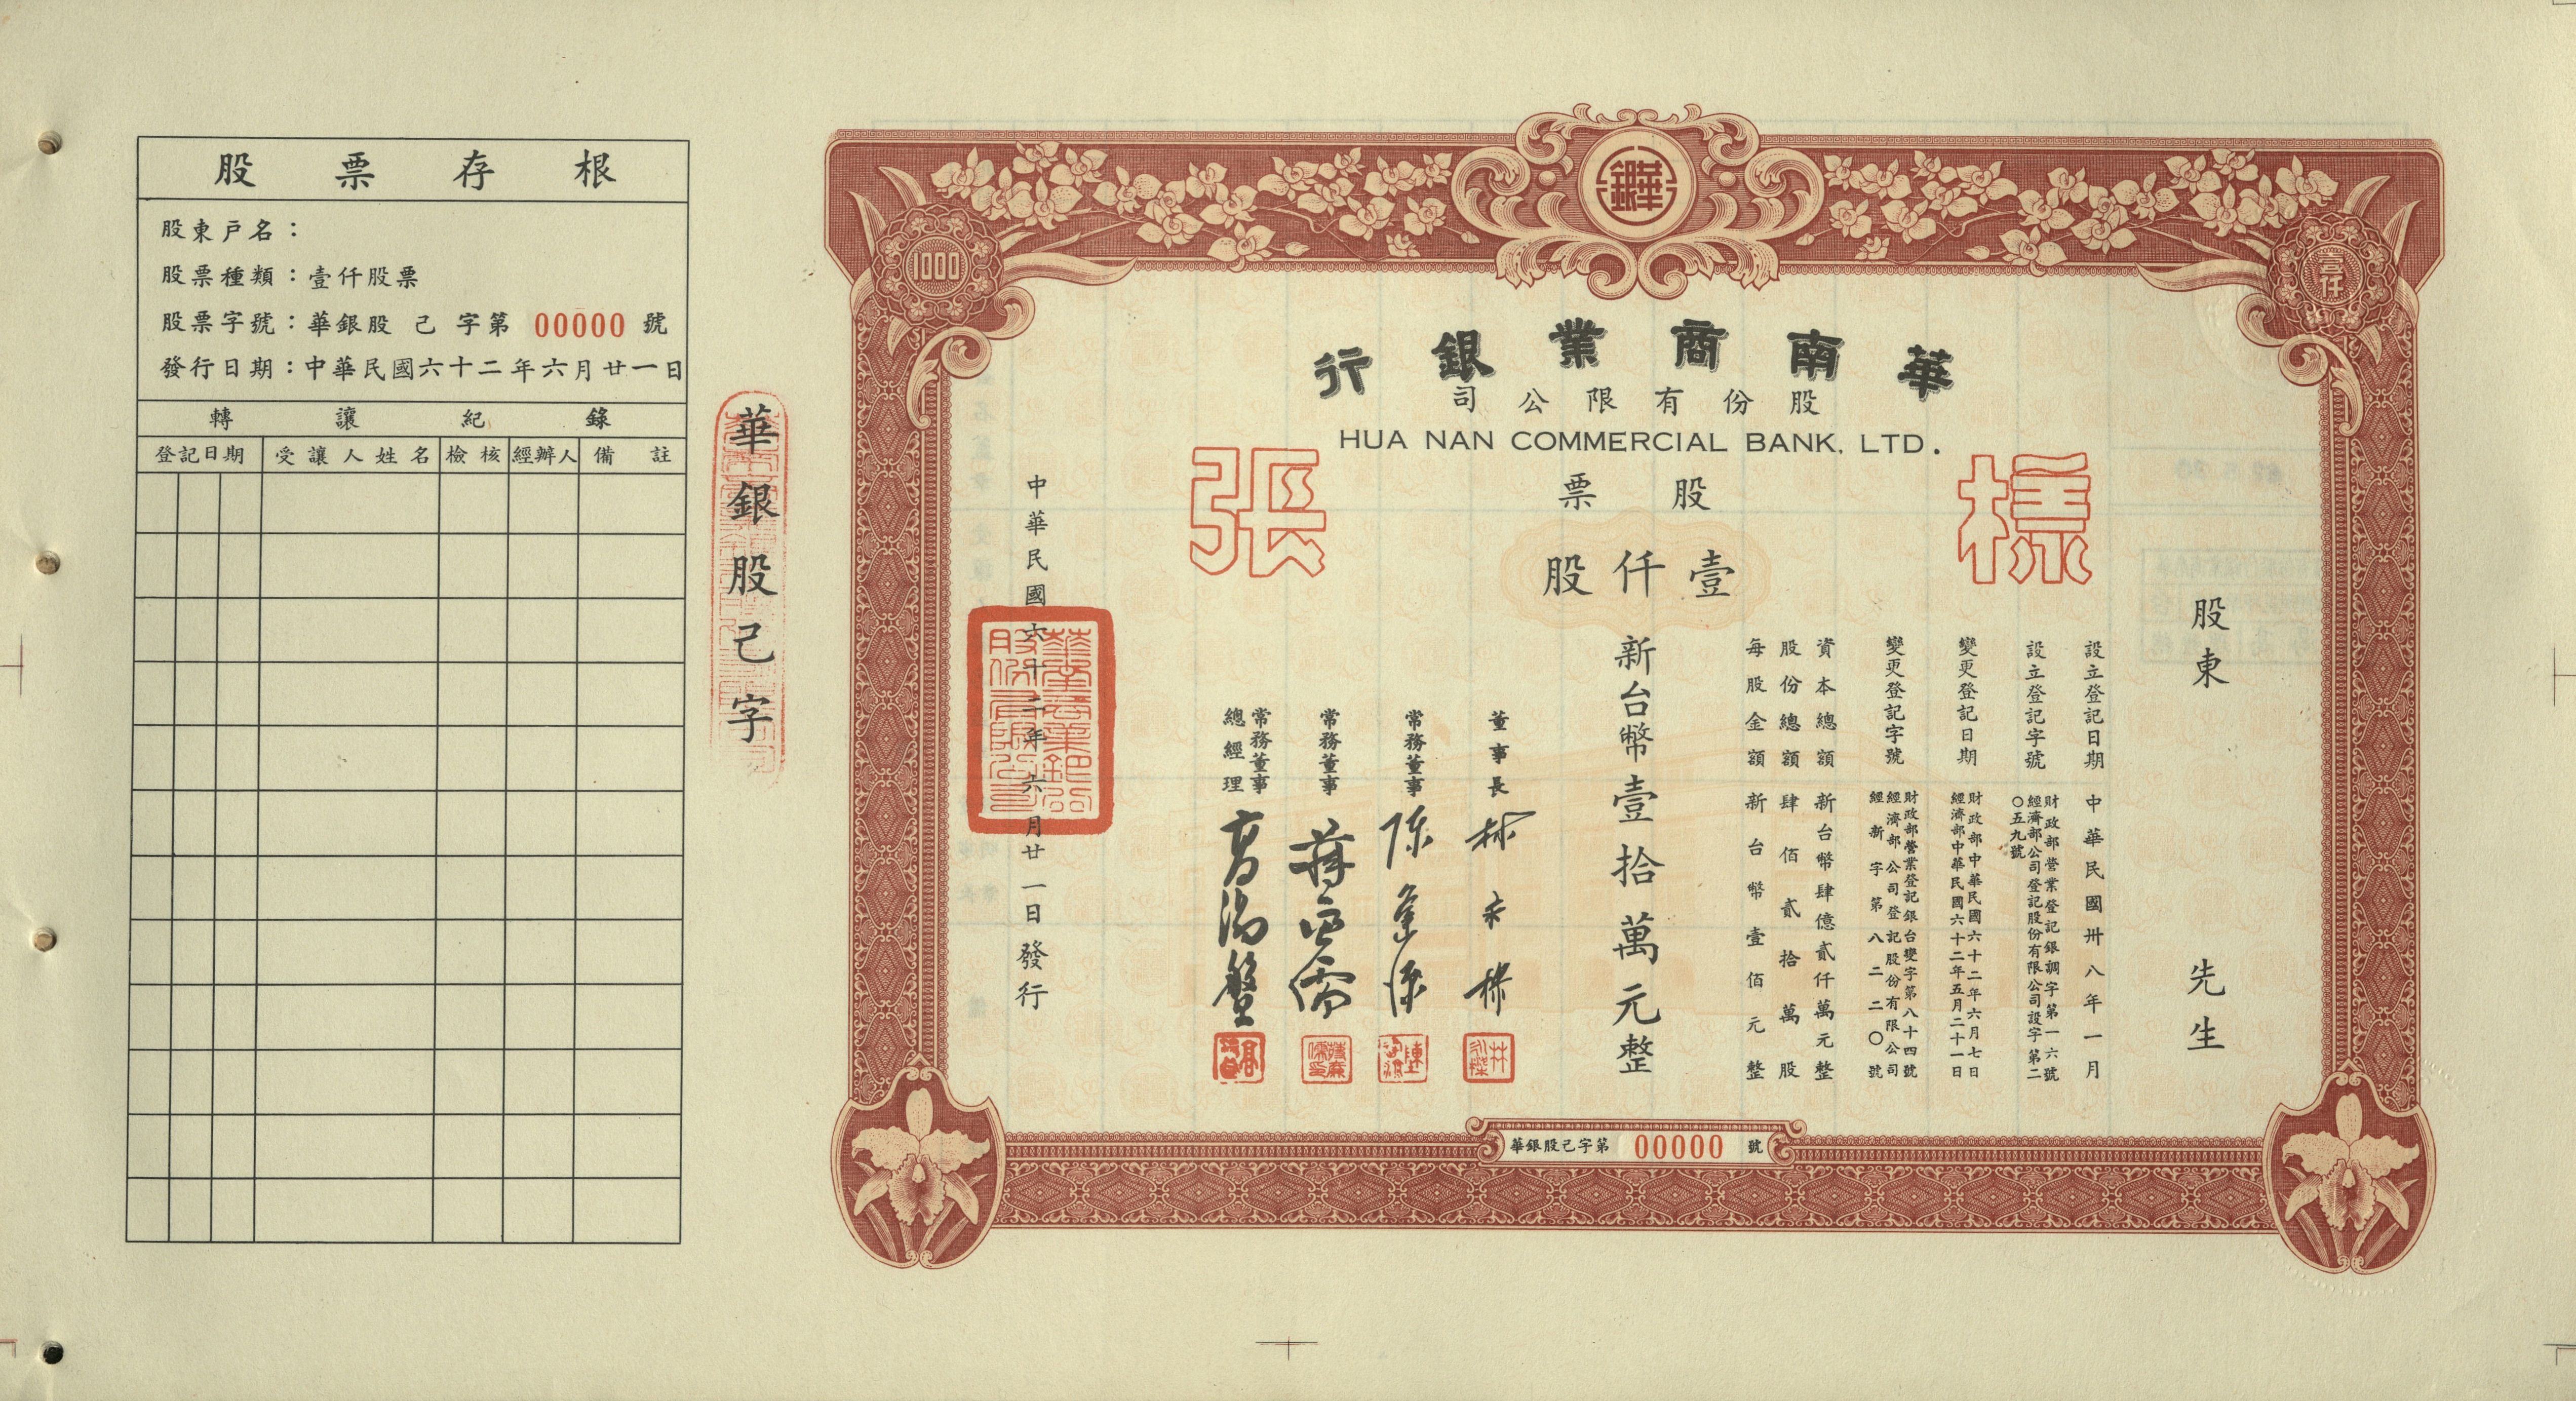 股票存根
股東戶名：
股票種類：壹仟股票
股票字號：華銀股 己 字第 00000 號
發行日期：中華民國六十二年六月廿一日
轉讓紀錄
登記日期 受讓人姓名 檢核 經辦人 備註
華銀股己字
1000
華銀
壹仟
華南商業銀行
股份有限公司
HUA NAN COMMERCIAL BANK, LTD.
樣張
股票
壹仟股
股東 先生
設立登記日期 中華民國卅八年一月
設立登記字號 財政部營業登記銀調字第一六號
經濟部公司登記股份有限公司設字第二〇五九號
變更登記日期 財政部中華民國六十二年六月七日
經濟部中華民國六十二年五月二十一日
變更登記字號 財政部營業登記銀台變字第八十四號
經濟部公司登記股份有限公司
經新字第八二二〇號
資本總額 新台幣肆億貳仟萬元整
股份總額 肆佰貳拾萬股
每股金額 新台幣壹佰元整
新台幣壹拾萬元整
董事長 林永樑
常務董事 陳逢源
常務董事
常務董事
總經理 高湯盤
中華民國六十二年六月廿一日發行
華南商業銀行股份有限公司
華銀股己字第 00000 號